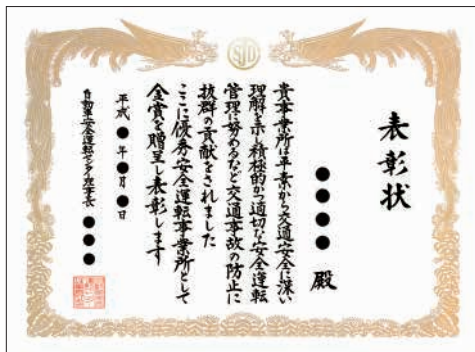 表彰状
●●●● 殿
貴事業所は平素から交通安全に深い
理解を示し積極的かつ適切な安全運転
管理に努めるなど交通事故の防止に
抜群の貢献をされました
ここに優秀安全運転事業所として
金賞を贈呈し表彰します
平成●年●月●日
自動車安全運転センター理事長 ●●●
SJD